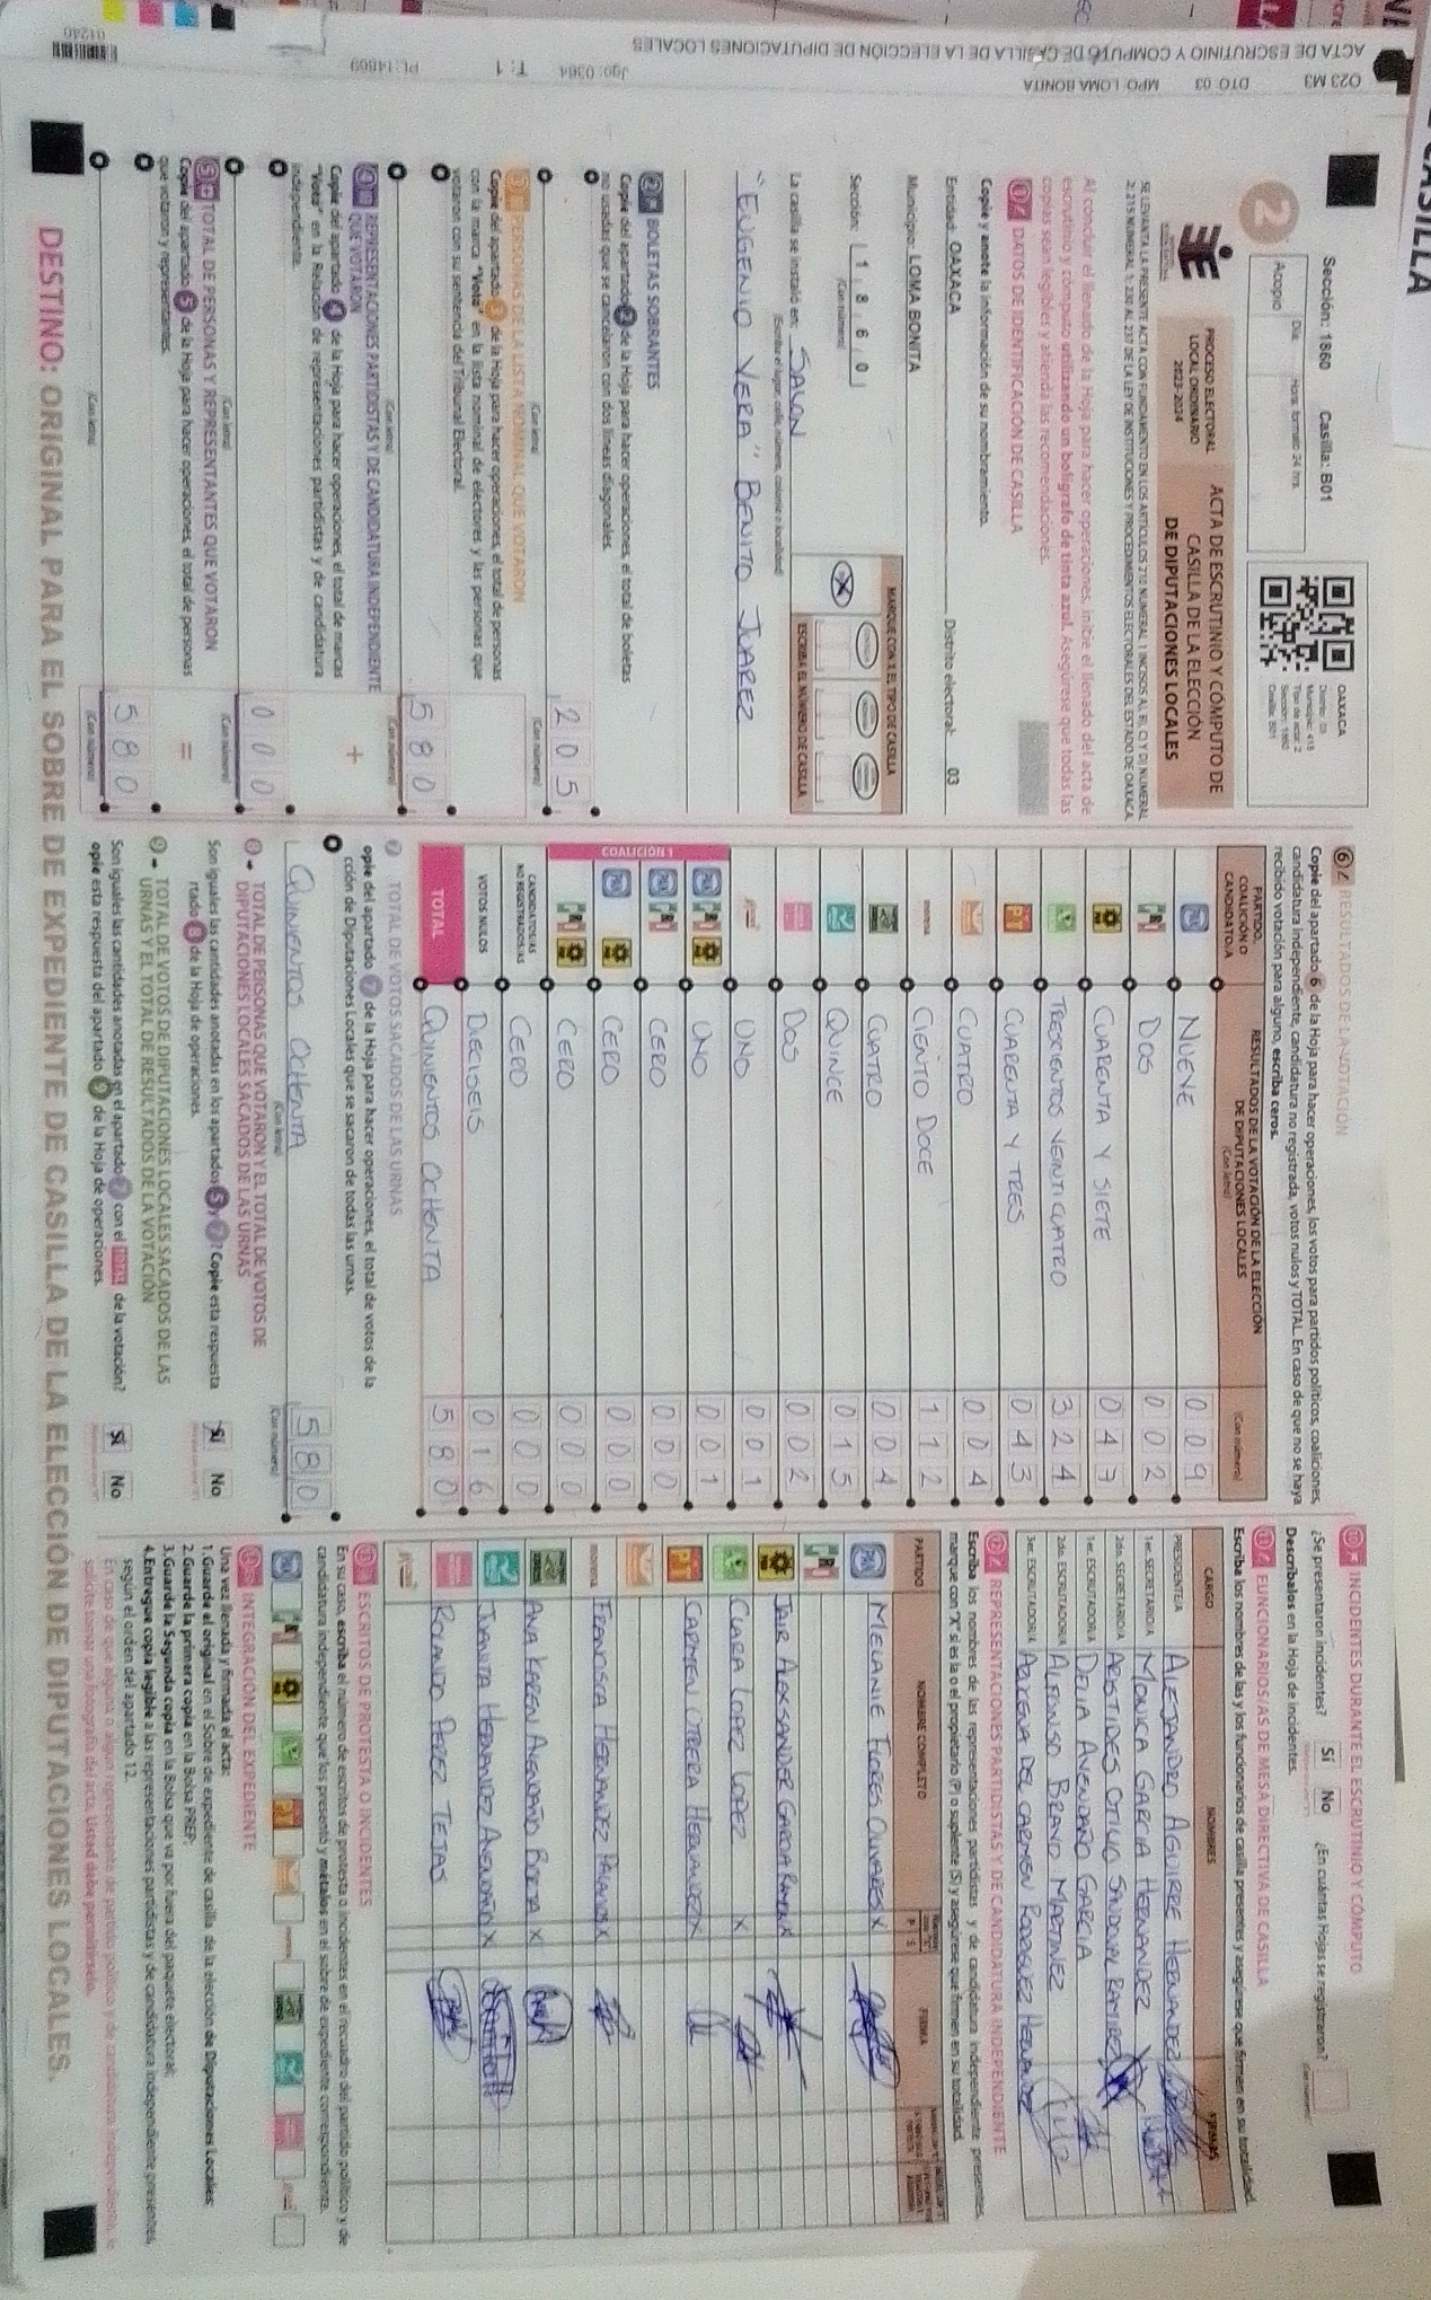 O23 M3 DTO: 03 MPO: LOMA BONITA Jgo: 0364 T: 1 PL: 14869
ACTA DE ESCRUTINIO Y CÓMPUTO DE CASILLA DE LA ELECCIÓN DE DIPUTACIONES LOCALES
01240
CASILLA
Sección: 1860 Casilla: B01
2
Acopio
Día
Hora: formato 24 hrs.
OAXACA
Distrito: 03
Municipio: 413
Tipo de acta: 2
Sección: 1860
Casilla: B01
PROCESO ELECTORAL
LOCAL ORDINARIO
2023-2024
ACTA DE ESCRUTINIO Y CÓMPUTO DE
CASILLA DE LA ELECCIÓN
DE DIPUTACIONES LOCALES
Al concluir el llenado de la Hoja para hacer operaciones, inicie el llenado del acta de
escrutinio y cómputo utilizando un bolígrafo de tinta azul. Asegúrese que todas las
copias sean legibles y atienda las recomendaciones.
1 DATOS DE IDENTIFICACIÓN DE CASILLA
Copie y anote la información de su nombramiento.
Entidad: OAXACA Distrito electoral: 03
Municipio: LOMA BONITA
Sección: 1 8 6 0
(Con número)
MARQUE CON X EL TIPO DE CASILLA
X
ESCRIBA EL NÚMERO DE CASILLA
La casilla se instaló en: SALON
(Escriba el lugar, calle, número, colonia o localidad)
"EUGENIO VERA" BENITO JUAREZ
2 BOLETAS SOBRANTES
Copie del apartado 2 de la Hoja para hacer operaciones, el total de boletas
no usadas que se cancelaron con dos líneas diagonales.
2 0 5
(Con letra) (Con número)
3 PERSONAS DE LA LISTA NOMINAL QUE VOTARON
Copie del apartado 3 de la Hoja para hacer operaciones, el total de personas
con la marca "Votó" en la lista nominal de electores y las personas que
votaron con su sentencia del Tribunal Electoral.
5 8 0
(Con letra) (Con número)
4 REPRESENTACIONES PARTIDISTAS Y DE CANDIDATURA INDEPENDIENTE
QUE VOTARON
+
Copie del apartado 4 de la Hoja para hacer operaciones, el total de marcas
"Votó" en la Relación de representaciones partidistas y de candidatura
independiente.
0 0 0
(Con letra) (Con número)
5 TOTAL DE PERSONAS Y REPRESENTANTES QUE VOTARON
=
Copie del apartado 5 de la Hoja para hacer operaciones, el total de personas
que votaron y representantes.
5 8 0
(Con letra) (Con número)
6 RESULTADOS DE LA VOTACIÓN
Copie del apartado 6 de la Hoja para hacer operaciones, los votos para partidos políticos, coaliciones,
candidatura independiente, candidatura no registrada, votos nulos y TOTAL. En caso de que no se haya
recibido votación para alguno, escriba ceros.
PARTIDO,
COALICIÓN O
CANDIDATO/A
RESULTADOS DE LA VOTACIÓN DE LA ELECCIÓN
DE DIPUTACIONES LOCALES
(Con letra)
(Con número)
PAN NUEVE 0 0 9
PRI DOS 0 0 2
PRD CUARENTA Y SIETE 0 4 7
TRESCIENTOS VEINTICUATRO 3 2 4
PT CUARENTA Y TRES 0 4 3
CUATRO 0 0 4
morena CIENTO DOCE 1 1 2
CUATRO 0 0 4
QUINCE 0 1 5
DOS 0 0 2
UNO 0 0 1
COALICIÓN 1
PAN PRI PRD UNO 0 0 1
PAN PRI CERO 0 0 0
PAN PRD CERO 0 0 0
PRI PRD CERO 0 0 0
CANDIDATOS/AS
NO REGISTRADOS/AS
CERO 0 0 0
VOTOS NULOS DIECISEIS 0 1 6
TOTAL QUINIENTOS OCHENTA 5 8 0
7 TOTAL DE VOTOS SACADOS DE LAS URNAS
opie del apartado 7 de la Hoja para hacer operaciones, el total de votos de la
cción de Diputaciones Locales que se sacaron de todas las urnas.
QUINIENTOS OCHENTA 5 8 0
(Con letra) (Con número)
8 TOTAL DE PERSONAS QUE VOTARON Y EL TOTAL DE VOTOS DE
DIPUTACIONES LOCALES SACADOS DE LAS URNAS
Son iguales las cantidades anotadas en los apartados 5 y 7? Copie esta respuesta
rtado 8 de la Hoja de operaciones.
Sí No
9 TOTAL DE VOTOS DE DIPUTACIONES LOCALES SACADOS DE LAS
URNAS Y EL TOTAL DE RESULTADOS DE LA VOTACIÓN
Son iguales las cantidades anotadas en el apartado 7 con el TOTAL de la votación?
opie esta respuesta del apartado 9 de la Hoja de operaciones.
Sí No
10 INCIDENTES DURANTE EL ESCRUTINIO Y CÓMPUTO
¿Se presentaron incidentes? Sí No ¿En cuántas Hojas se registraron?
(Con número)
Descríbalos en la Hoja de incidentes.
11 FUNCIONARIOS/AS DE MESA DIRECTIVA DE CASILLA
Escriba los nombres de las y los funcionarios de casilla presentes y asegúrese que firmen en su totalidad.
CARGO NOMBRES FIRMAS
PRESIDENTE/A ALEJANDRO AGUIRRE HERNANDEZ
1er. SECRETARIO/A MONICA GARCIA HERNANDEZ
2do. SECRETARIO/A ARISTIDES OTILIO SANDOVAL RAMIREZ
1er. ESCRUTADOR/A DELIA AVENDAÑO GARCIA
2do. ESCRUTADOR/A ALFONSO BRAVO MARTINEZ
3er. ESCRUTADOR/A AZUCENA DEL CARMEN RODRIGUEZ HERNANDEZ
12 REPRESENTACIONES PARTIDISTAS Y DE CANDIDATURA INDEPENDIENTE
Escriba los nombres de las representaciones partidistas y de candidatura independiente presentes,
marque con "X" si es la o el propietario (P) o suplente (S) y asegúrese que firmen en su totalidad.
PARTIDO NOMBRE COMPLETO P S FIRMA
PAN MELANIE FLORES OLIVARES X
PRI
PRD JAIR ALEXSANDER GARCIA RAMON X
CLARA LOPEZ LOPEZ X
PT CARMEN UTRERA HERNANDEZ X
morena FRANCISCA HERNANDEZ PALOMOS X
ANA KAREN AVENDAÑO BORJA X
JUANITA HERNANDEZ AVENDAÑO X
ROLANDO PEREZ TEJAS
13 ESCRITOS DE PROTESTA O INCIDENTES
En su caso, escriba el número de escritos de protesta o incidentes en el recuadro del partido político y de
candidatura independiente que los presentó y métalos en el sobre de expediente correspondiente.
14 INTEGRACIÓN DEL EXPEDIENTE
Una vez llenada y firmada el acta:
1. Guarde el original en el Sobre de expediente de casilla de la elección de Diputaciones Locales;
2. Guarde la primera copia en la Bolsa PREP;
3. Guarde la Segunda copia en la Bolsa que va por fuera del paquete electoral;
4. Entregue copia legible a las representaciones partidistas y de candidatura independiente presentes,
según el orden del apartado 12.
En caso de que alguna o algún representante de partido político y de candidatura independiente, le
solicite tomar una fotografía del acta, Usted debe permitírselo.
DESTINO: ORIGINAL PARA EL SOBRE DE EXPEDIENTE DE CASILLA DE LA ELECCIÓN DE DIPUTACIONES LOCALES.